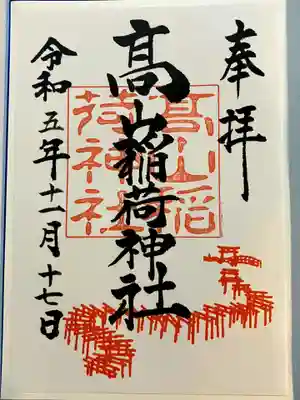 奉拝
髙山稲荷神社
髙山稲
荷神社
令和五年十一月十七日